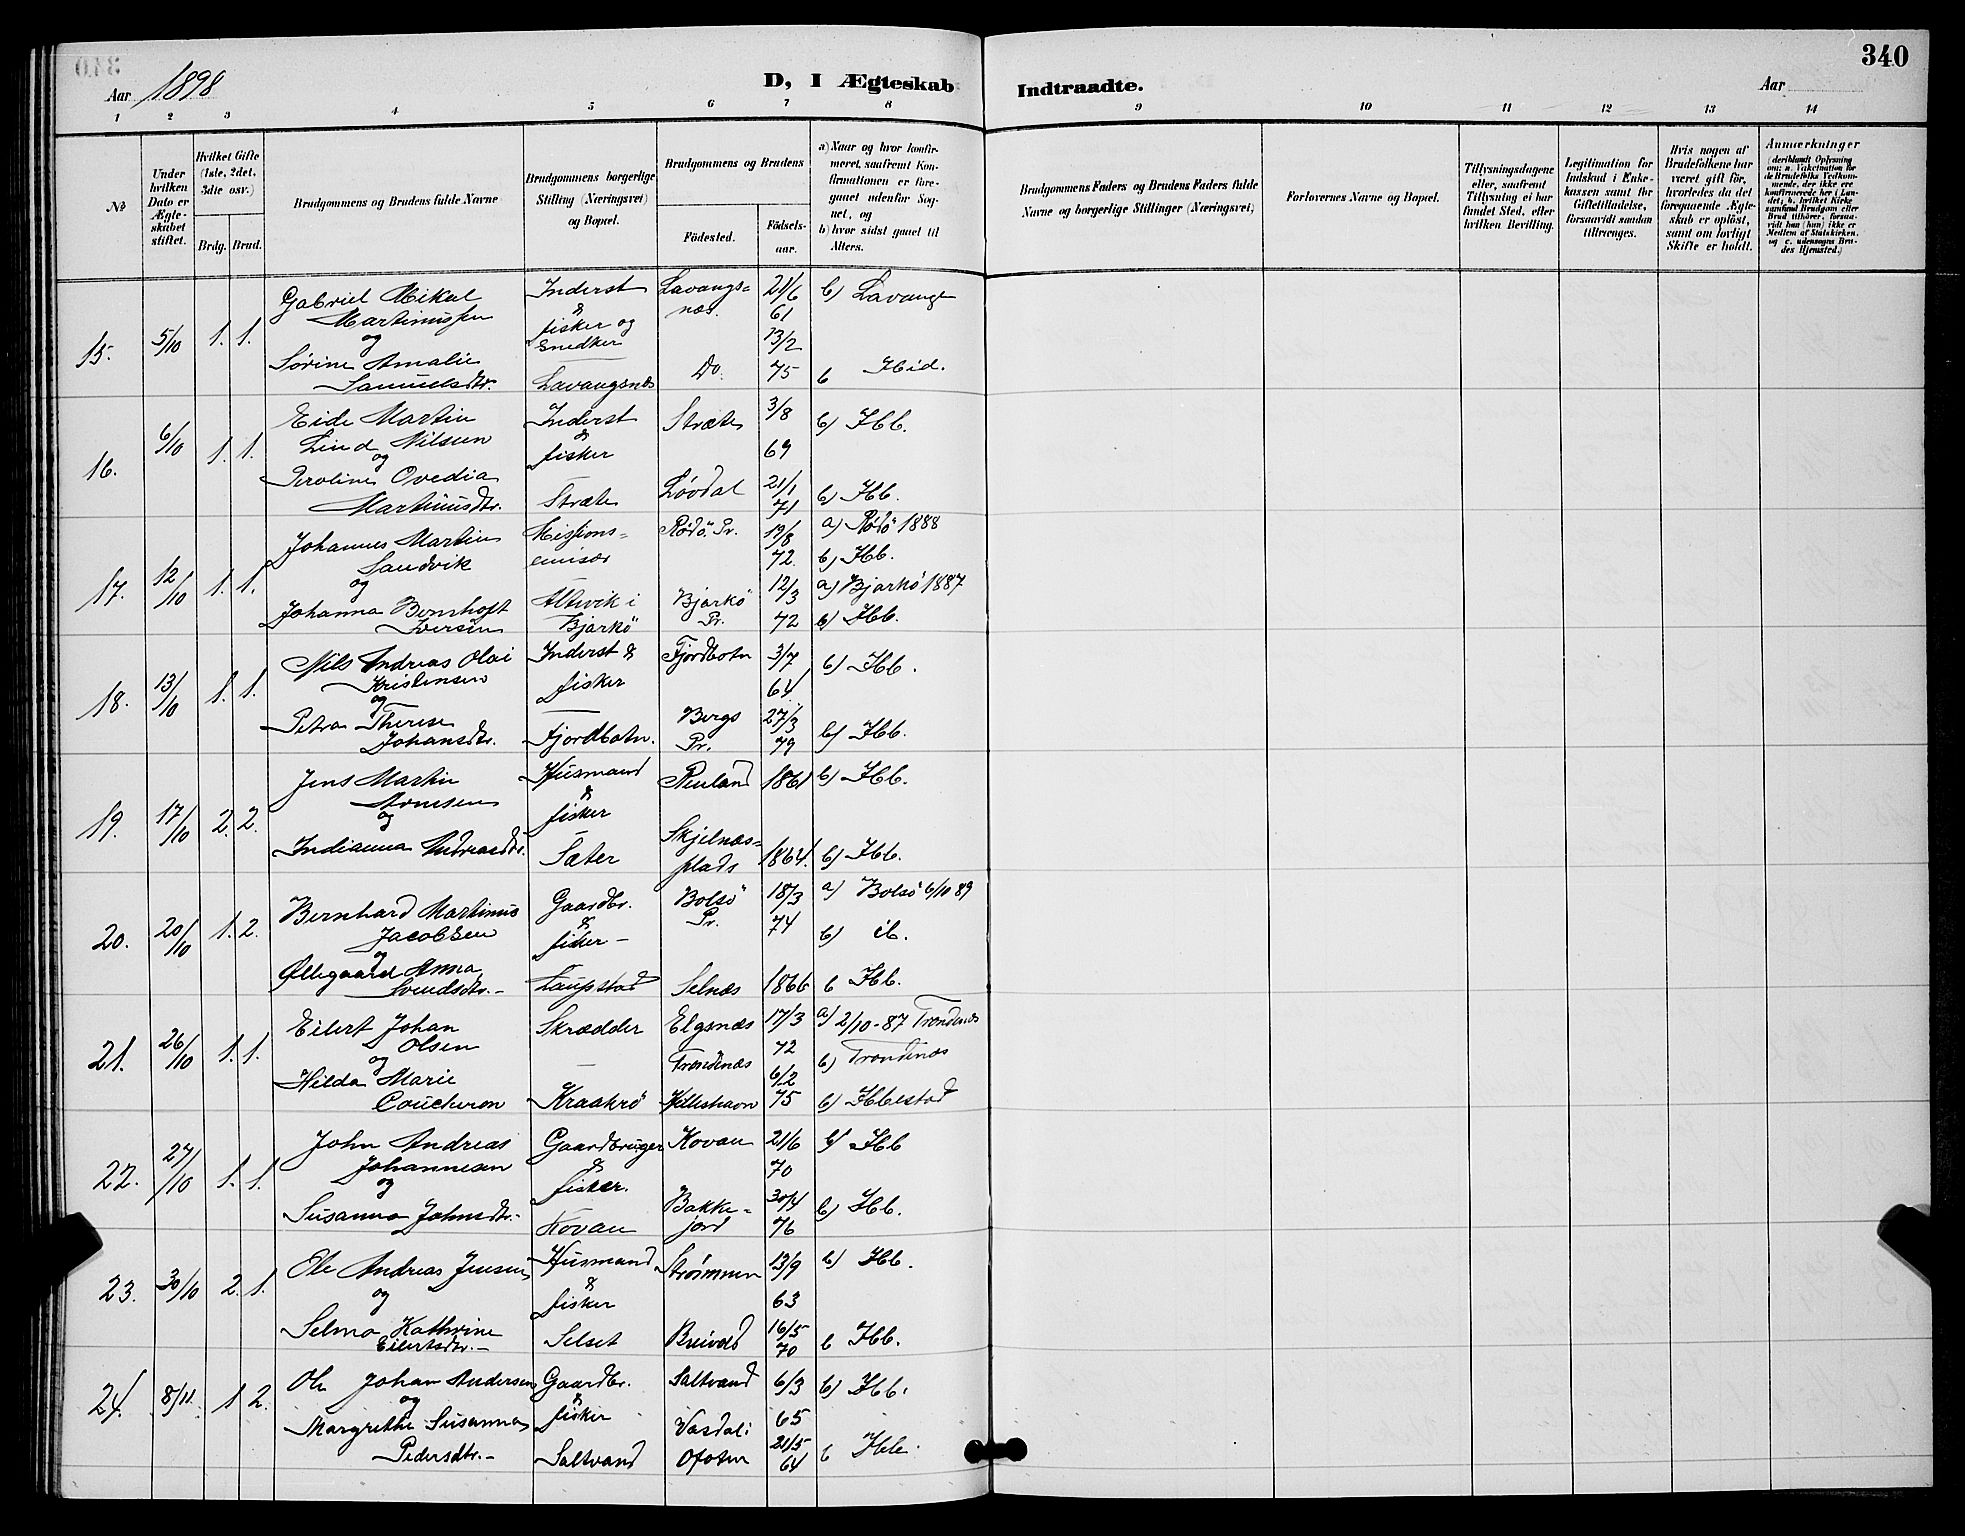 340
Aar 1898
D, I Ægteskab Indtraadte.
Aar
1 2 3 4 5 6 7 8 9 10 11 12 13 14
№
Under hvilken Dato er Ægteskabet stiftet.
Hvilket Gifte (1ste, 2det, 3die osv.)
Brdg. Brud.
Brudgommens og Brudens fulde Navne
Brudgommens borgerlige Stilling (Næringsvei) og Bopæl.
Brudgommens og Brudens
Fødested.
Fødselsaar.
a) Naar og hvor konfirmeret, saafremt Konfirmationen er foregaaet udenfor Sognet, og
b) hvor sidst gaaet til Alters.
Brudgommens Faders og Brudens Faders fulde Navne og borgerlige Stillinger (Næringsvei)
Forlovernes Navne og Bopæl.
Tillysningsdagene eller, saafremt Tillysning ei har fundet Sted, efter hvilken Bevilling.
Legitimation for Indskud i Enkekassen samt for Giftetilladelse, forsaavidt saadan tiltrænges.
Hvis nogen af Brudefolkene har været gift før, hvorledes da det foregaaende Ægteskab er opløst, samt om lovligt Skifte er holdt.
Anmærkninger
15. 5/10 1. 1.
Gabriel Mikal Martinussen
og
Sørine Amalie Samuelsdtr.
Inderst & fisker og Snedker
Lavangsnes
Lavangsnæs. 21/6 61 b) Lavange
Do. 13/2 75 b Ibid.
16. 6/10 1. 1.
Eide Martin Lind Nilsen
og
Peroline Ovedia Martinusdtr.
Inderst & fisker
Stræte
Stræte 3/8 69 b) Ibb.
Løvdal 21/1 71 b) Ibb.
17. 12/10 1. 1.
Johannes Martin Sandvik
og
Johanna Bernhoft Iversen
Missionsemisær
Altevik i Bjarkö
Rödö Pr. 19/8 72. a) Rödö 1888
b) Ibb.
Bjarkö Pr. 12/3 72 a) Bjarkö 1887
b) Ibb.
18. 13/10 1. 1.
Nils Andreas Olai Kristensen
og
Petra Therese Johansdtr.
Inderst & fisker
Fjordbotn.
Fjordbotn 3/7 64 b) Ibb.
Bergs Pr. 27/3 79 b) Ibb.
19. 17/10 2. 2.
Jens Martin Arnesen
og
Indianna Andreasdtr.
Husmand & fisker
Sæter
Renland 1861 b) Ibb.
Skjelnæsplads 1864. b) Ibb.
20. 20/10 1. 2.
Bernhard Martinus Jacobsen
og
Øllegaard Anna Svendsdtr.-
Gaardbr. & fisker -
Laupstad
Bolsö Pr. 18/3 74 a) Bolsö 6/10 89
b) ib.
Selnæs 1866 b Ibb.
21. 26/10 1. 1.
Eilert Johan Olsen
og
Hilda Marie Coucheron
Skrædder
Kraakrö
Elgsnæs Trondenæs 17/3 72 a) 2/10-87 Trondenæs
b) Trondenæs
Helleshavn 6/2 75 b) Ibbestad
22. 27/10 1. 1.
John Andreas Johannesen
og
Susanna Johnsdtr.-
Gaardbruger & fisker.
Kovan
Kovan 21/6 70 b) Ibb
Bakkejord 30/4 76 b) Ibb.
23. 30/10 2. 1.
Ole Andreas Jensen
og
Selma Kathrine Eilertsdtr.-
Husmand & fisker
Selset
Strömmen 13/9 63 b) Ibb.
Breivold 16/5 70 b Ibb.
24. 8/11. 1 2.
Ole Johan Andersen
og
Margrethe Susanna Pedersdtr.-
Gaardbr. & fisker
Saltvand
Saltvand 6/3 65 b) Ibb.
Vasdal i Ofoten 21/5 64 b Ibb.